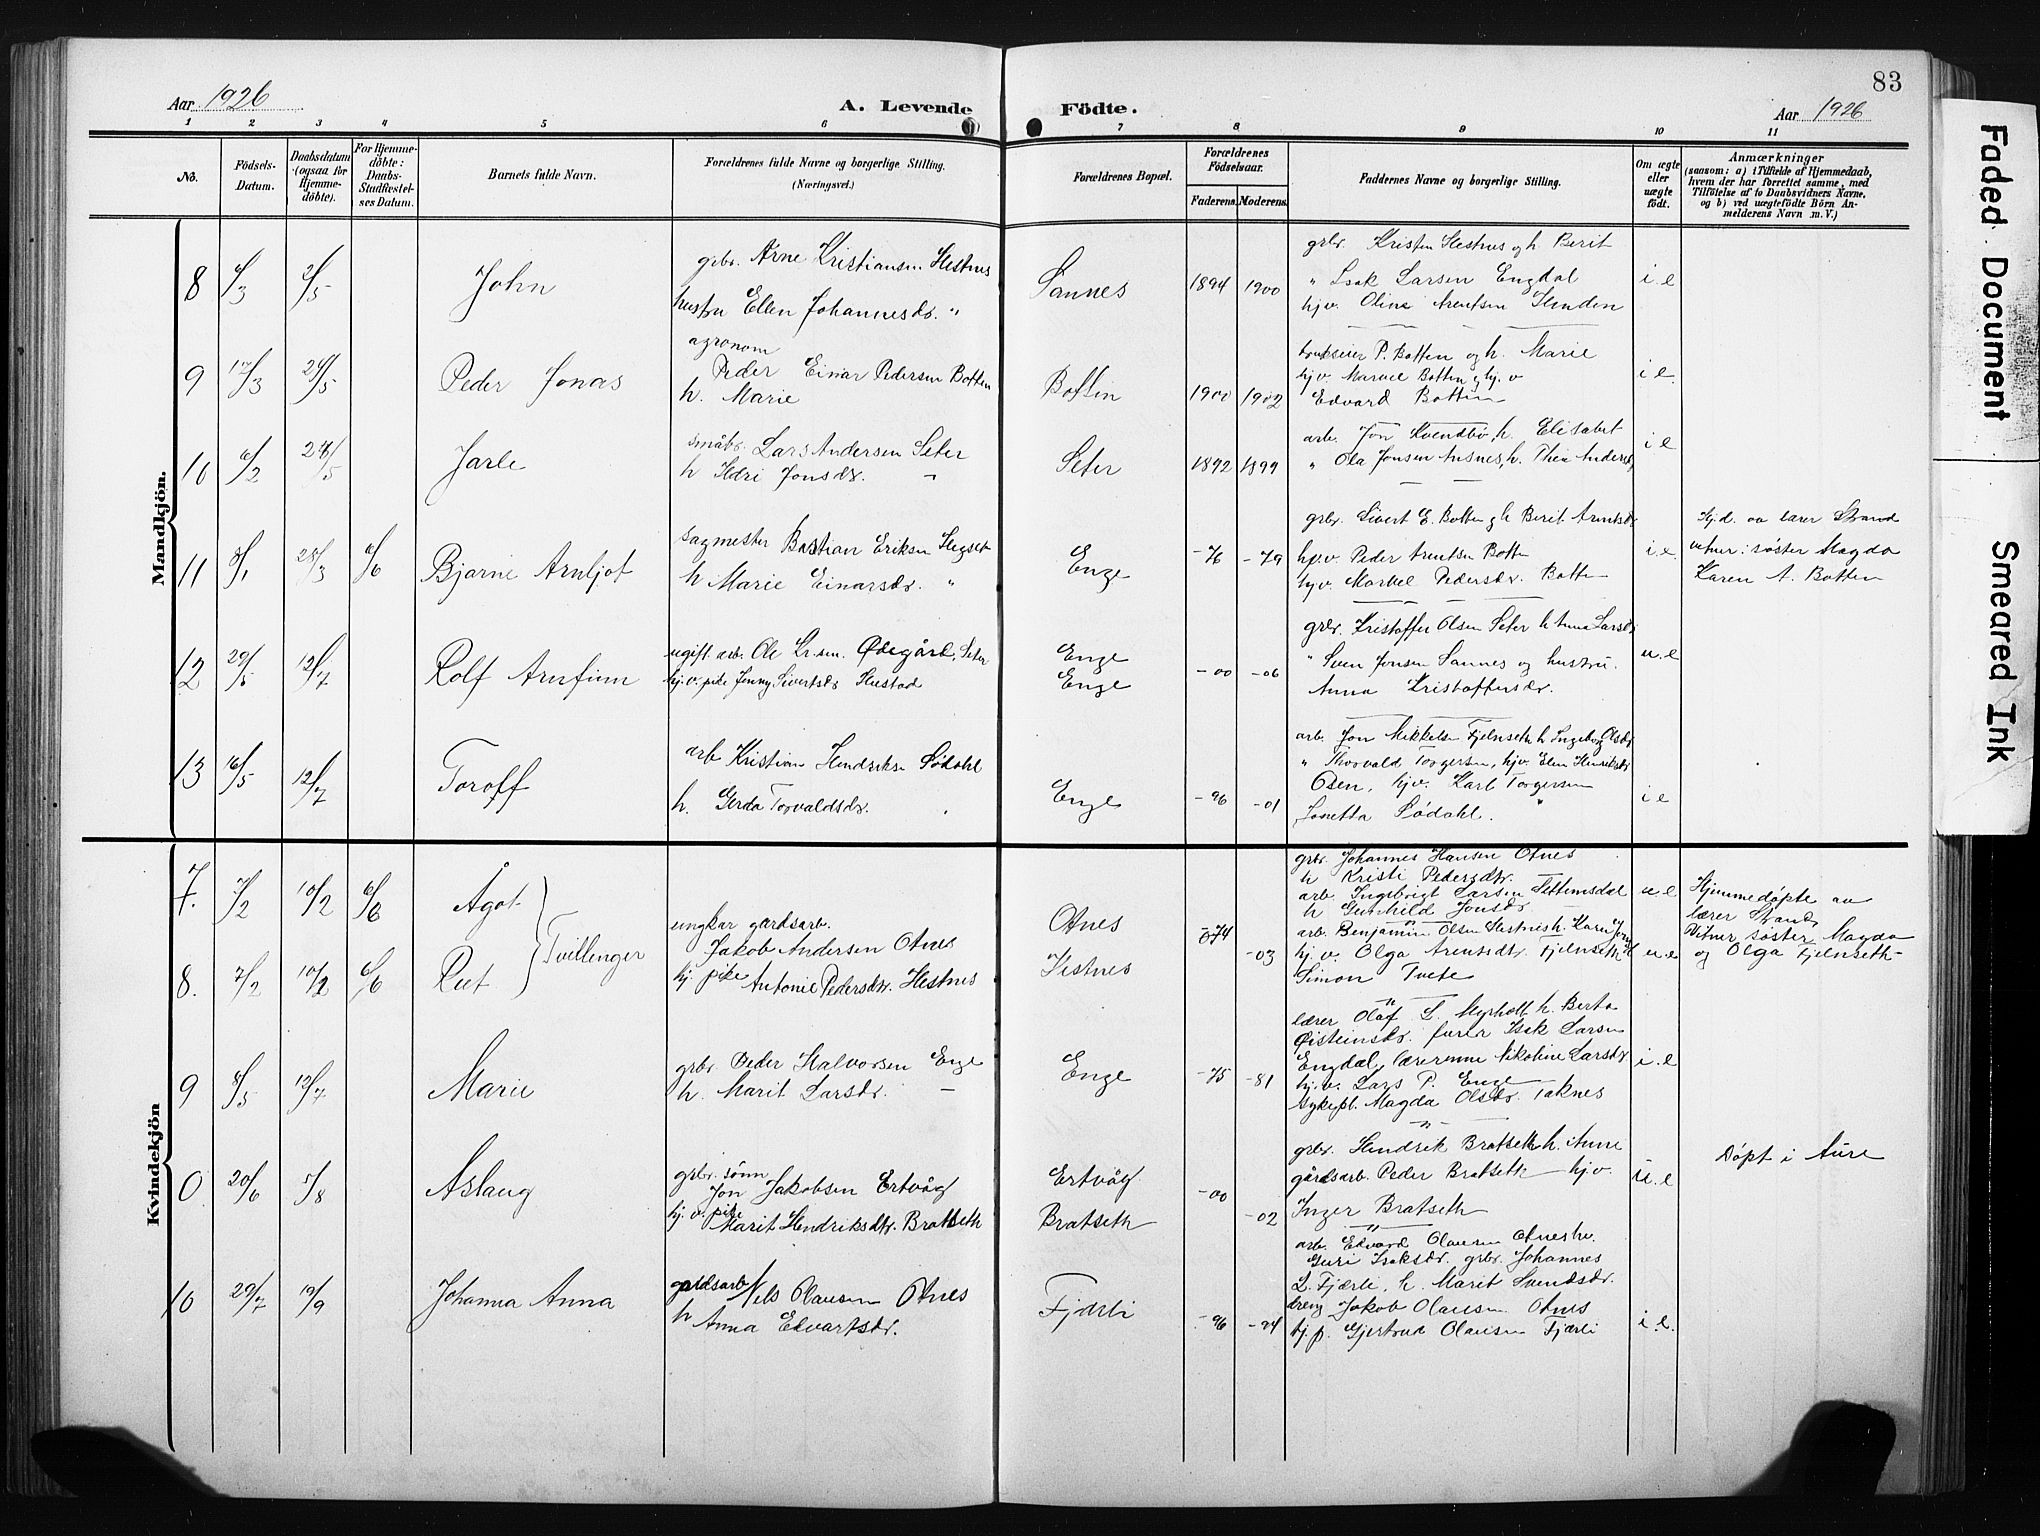 83
Aar 1926
A. Levende Födte.
Aar 1926
1 2 3 4 5 6 7 8 9 10 11
No.
Födsels-Datum.
Daabsdatum (ogsaa for Hjemme-döbte).
For Hjemme-döbte: Daabs-Stadfæstel-ses Datum.
Barnets fulde Navn.
Forældrenes fulde Navne og borgerlige Stilling.
(Næringsvei.)
Forældrenes Bopæl.
Forældrenes Födselsaar.
Faderens. Moderens.
Faddernes Navne og borgerlige Stilling.
Om ægte eller uægte födt.
Anmærkninger
(saasom: a) i Tilfælde af Hjemmedaab,
hvem der har forrettet samme, med
Tilföielse af to Daabsvidners Navne,
og b) ved uægtefödte Börn An-
melderens Navn m. V.)
Mandkjön.
8 2/5 John
grbr. Arne Kristiansen Hestnes
hustru Ellen Johannesdr. "
Sannes 1894 1900
grbr. Kristen Hestnes og h. Berit
" Isak Larsen Engdal
hjv. Oline Arentsen
i e
9 17/3 24/5 Peder Jonas
agronom
Peder Einar Pedersen Botten
h. Marie
Botten 1900 1902
brukseier P. Botten og h. Marie
hj.v. Marael Botten og hj. v
Edvard Botten
i e.
10 6/2 24/5 Jarle
småbr. Lars Andersen Seter
h Jonsdr. "
Seter 1892 1899
arb. Jon Kvendbø, h. Elisabet
" Ola Jonsen Ansnes, h. Thea Andersd.
i e
11 8/1 28/3 6/6 Bjarne Arnljot
sagmester Bastian Eriksen Hegset
h Marie Einarsdr. "
Enge -76 -79
grbr. Sivert E. Botten og h Berit Arntsdr
Peder Arentsen Botten
hj.v. Marael Pedersdr. Botten
i e.
Hj.d. av lærer Strand
vitner: søster Magda
Karen A. Botten
12 29/5 12/7 Rolf Arnfinn
ugift. arb. Ole Kr.sen. Ødegård, Seter
hj.v. pike Jenny Sivertsdr Hustad
Enge
Enge
-00 -06
grbr. Kristoffer Olsen Seter h Anna Larsdr
" Sven Jonsen Sannes og hustru.
Anna Kristoffersdr.
u. e
13 16/5 12/7 Toroff
arb Kristian Hendriksen Södahl
h. Gerda Torvaldsdr.
Enge -96 -01
arb. Jon Mikkelsen Fjelnseth h Ingeborg Olsdr
" Thorvald Torgersen, hjv. Elen Henriksdr
Osen, hjv. Karl Torgersen
Jonetta Södahl.
i e
Kvindekjön
7. 7/2 10/2 6/6 Ågot
8. 7/2 10/2 6/6 Rut
Tvillinger
ungkar gårdsarb.
Jakob Andersen Otnes
hj. pike Antonie Pedersdtr. Hestnes
Otnes
Hestnes
-74
-03
grbr. Johannes Hansen Otnes
h Kristi Pedersdtr.
arb. Ingebrigt Larsen Settemsdal
h Gunhild Jonsdr
arb. Benjamin Olsen Hestnes h. Karen
hj. v. Olga Arentsdtr. Fjelnseth
Simon Tvete
u. e
u e
Hjemmedøpte av
lærer Strand
Vitner søster Magda
og Olga Fjelnseth
9 8/5 12/7 Marie
grbr. Peder Halvorsen Enge
h. Marit Larsdr. "
Enge -75 -81
lærer Olaf S. Myrholt h. Berta
Øisteinsdr. furer Isak Larsen
Engdal, lærerinne Nikoline Larsdr
hj.v. Lars P. Enge
sykepl. Magda Olsdr. Taknes
i e
0 20/6 5/8 Aslaug
grbr. sönn
Jon Jakobsen Ertvåg
hj. v. pike
Marit Hendriksdtr. Bratseth
Ertvåg
Bratseth
-00
-02
grbr. Hendrik Bratseth h. Anne
gårdsarb. Peder Bratseth hj.v.
Inger Bratseth
u. e
Döpt i Aure
10 29/7 19/9 Johanna Anna
gårdsarb Nils Olausen Otnes
h Anna Edvartsdr.
Fjærli -96 -94
arb. Edvard Olausen Otnes hv.
Guri Isaksdr. grbr. Johannes
L. Fjærli, h. Marit Svendsdr.
dreng Jakob Olausen Otnes
hj. p. Gjertrud Olausen Fjærli
i e.
Faded Document
Smeared Ink